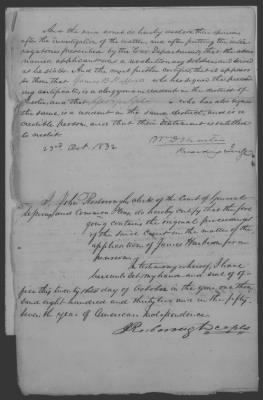 And the said court do hereby declare their opinion
after the investigation of the matter, and after putting the inter-
rogatories prescribed by the War Department, that the above
named applicant was a revolutionary soldier and served
as he states. And the court further certifies that it appears
to them that James B. who has signed the preced-
ing certificate, is a clergyman resident in the district of
and that who has also signed
the same, is a resident in the same district, and is a
credible person, and that their statement is entitled
to credit.
23rd Oct. 1832 Wm D. Martin
Presiding Judge
I, John Rosborough, clerk of the Court of General
Sessions and Common Pleas, do hereby certify that the fore-
going contains the original proceedings
of the said Court in the matter of the
application of James Harbison for a
pension.
In testimony whereof, I have
hereunto set my hand and seal of of-
fice this twenty third day of October in the year one thou-
sand eight hundred and thirty two and in the fifty-
seventh year of American Independence.
J Rosborough